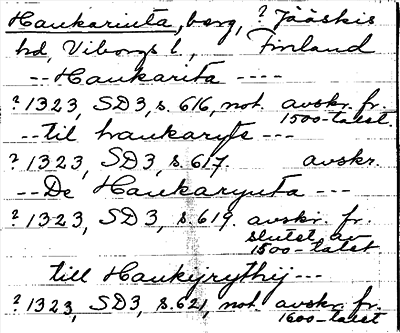 Haukariuta, berg, ? Jääskis
hd, Viborgs l., Finland
-- Haukarita ----
? 1323, SD3, s. 616, not. avskr. fr.
1500-talet.
-- til haukaryte ---
? 1323, SD3, s. 617. avskr.
-- De Haukaryuta ---
? 1323, SD3, s. 619. avskr. fr.
slutet av
1500-talet.
till Haukyrythij ---
? 1323, SD3, s. 621, not. avskr. fr.
1600-talet